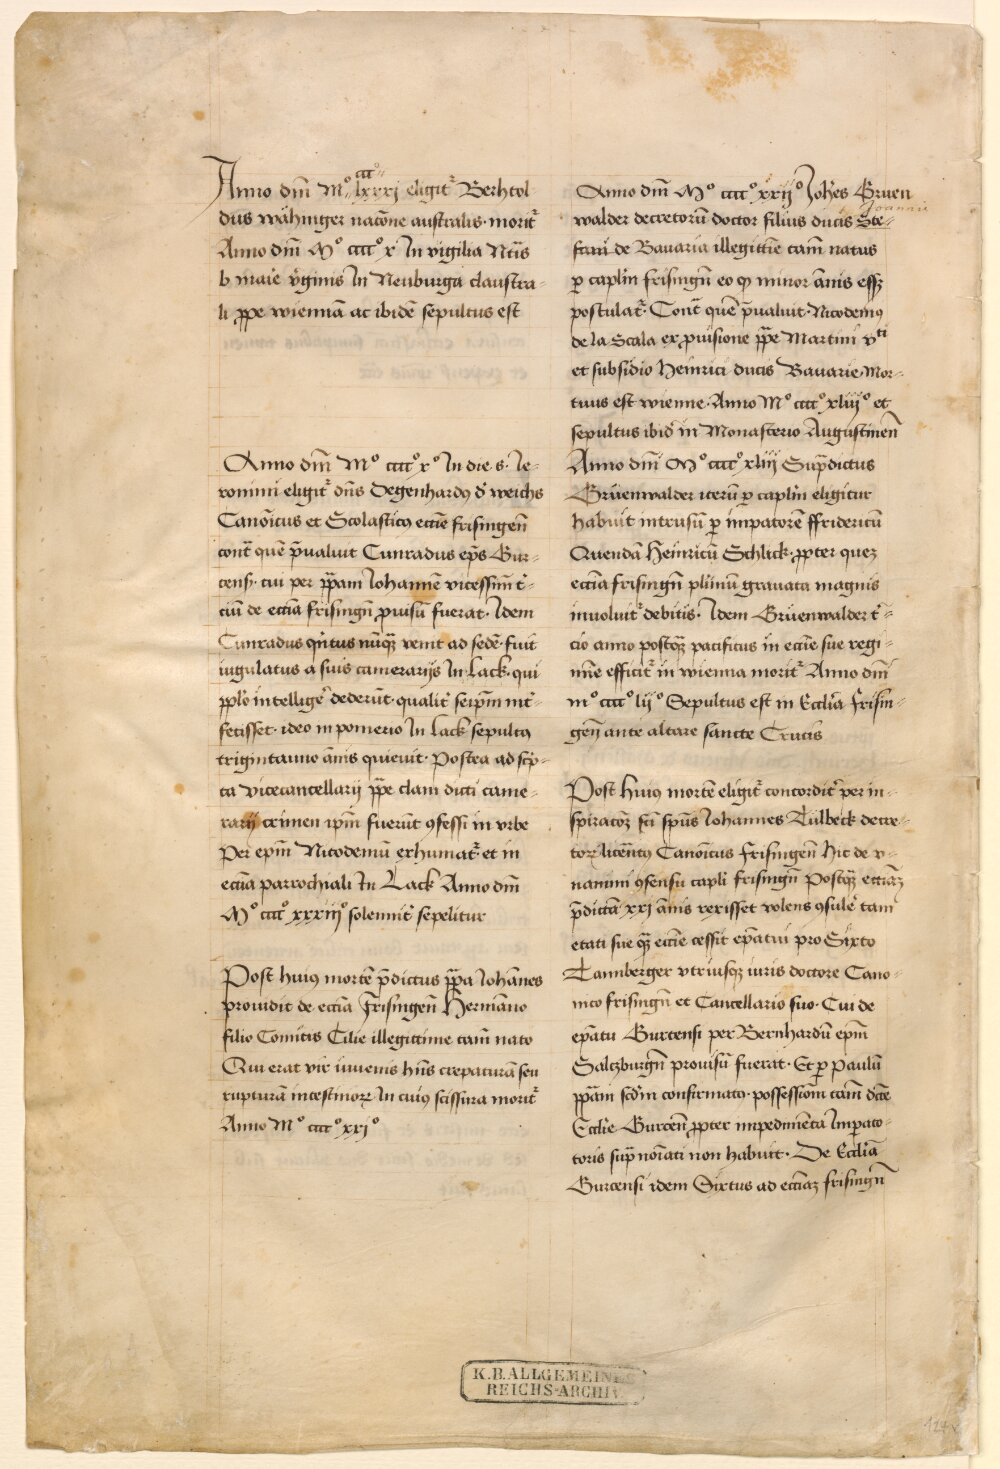 Anno dm̄ Mº cccº lxxxj eligit᷑ Berhtol
dus wähinger nacōne australis · morit᷑
Anno dm̄ Mº ccccº xº In vigilia Nt̄is
b maīe v̓ginis In Neuburga claustra-
li ꝓpe wiennā ac ibidē sepultus est
Anno dm̄ Mº ccccº xº In die · s · Ie-
ronimi eligit᷑ dn̄s Degenhardꝰ d̓ weichs
Canōicus et Scolasticꝰ eccīe frisingen̄
cont᷑ quē p̄ualuit Cunradus ep̄s Gur-
cen̄s · cui per pp̄am Iohannē vicessim̄ t̓-
ciū de eccīa frisingn̄ ꝓuisū fuerat · Idem
Cunradus qn̓tus nūqꝫ venit ad sedē · fuit
iugulatus a suis camerarijs In Lack · qui
ppl̓o intellige̓ dederūt · qualit᷑ seip̄m int̓-
fecisset · ideo in pomerio In Lack sepultꝰ
trigintauno ānis quieuit · Postea ad sc̓p-
ta vicecancellarij pp̄e clam dicti came-
rarij crimen ip̄m fuerūt ꝯfessi in vrbe
Per epm̄ Nicodemū exhumat᷑ · et in
eccīa parrochiali In Lack Anno dm̄
Mº ccccº xxxiijº solennit᷑ sepelitur
Post huiꝰ mortē p̄dictus pp̄a Iohānes
prouidit de eccīa Frisingen̄ Hermāno
filio Comitis Cilie illegittime tam̄ nato
Qui erat vir iuuenis hn̄s crepaturā seu
rupturā intestinoꝝ In cuiꝰ scissura morit᷑
Anno Mº ccccº xxjº
Anno dm̄ Mº ccccº xxijº Ioh̓es Gruen
Joannis
walder decretorū doctor filius ducis Ste-
fani de Bauaria illegittīe tam̄ natus
ꝑ caplm̄ frisingn̄ eo ꝙ minor ānis eēꝫ
postulat᷑ · Cont᷑ quē p̄ualuit · Nicodemꝰ
de la Scala ex ꝓuisione pp̄e Martini vᵗⁱ
et subsidio Heinrici ducis Bauarie · Mor-
tuus est wienne · Anno Mº ccccº xliijº et
sepultus ibid̓ in Monasterio Augustinen̄
Anno dm̄ Mº ccccº xliij Sup̄dictus
Grüenwalder iterū ꝑ caplm̄ eligitur
habuit intrusū ꝑ imp̄atorē ffridericū
Quendā Heinricū Schlick · ꝓpter quez
eccīa frisingn̄ plūrimū grauata magnis
inuoluit᷑ debitis · Idem Grüenwalder t̓-
cio anno postqꝫ pacificus in eccīe sue regi-
mīe efficit᷑ in wienna morit᷑ Anno dm̄
mº ccccº lijº Sepultus est in Eccl̓ia Frisin-
gen̄ ante altare sancte Crucis
Post huiꝰ mortē eligit᷑ concordit᷑ per in-
spiracōꝫ scī spūs Iohannes Tülbeck decre-
toꝝ licēntꝰ Canōicus frisingen̄ Hic de v-
nanimi ꝯsensu capl̓i frisingn̄ Postqꝫ eccīaꝫ
p̄dictā xxj ānis rexisset volens ꝯsule̓ tam
etati sue qꝫ eccīe cessit ep̄atui pro Sixto
Tannberger vtriusqꝫ iuris doctore Cano-
nico frisingn̄ et Cancellario suo · Cui de
ep̄atu Gurcensi per Bernhardū epm̄
Salczburgn̄ prouisū fuerat · Et ꝑ Paulū
pp̄am scd̓m confirmato · possessionī tam̄ dc̄e
Eccl̓ie Gurcen̄ ꝓpter impedimēta Imp̄ato-
toris sup̄ noīati non habuit · De Eccl̓ia
Gurcensi idem Sixtus ad eccīaꝫ frisingn̄
K.B.ALLGEMEINES
REICHS-ARCHIV
124v